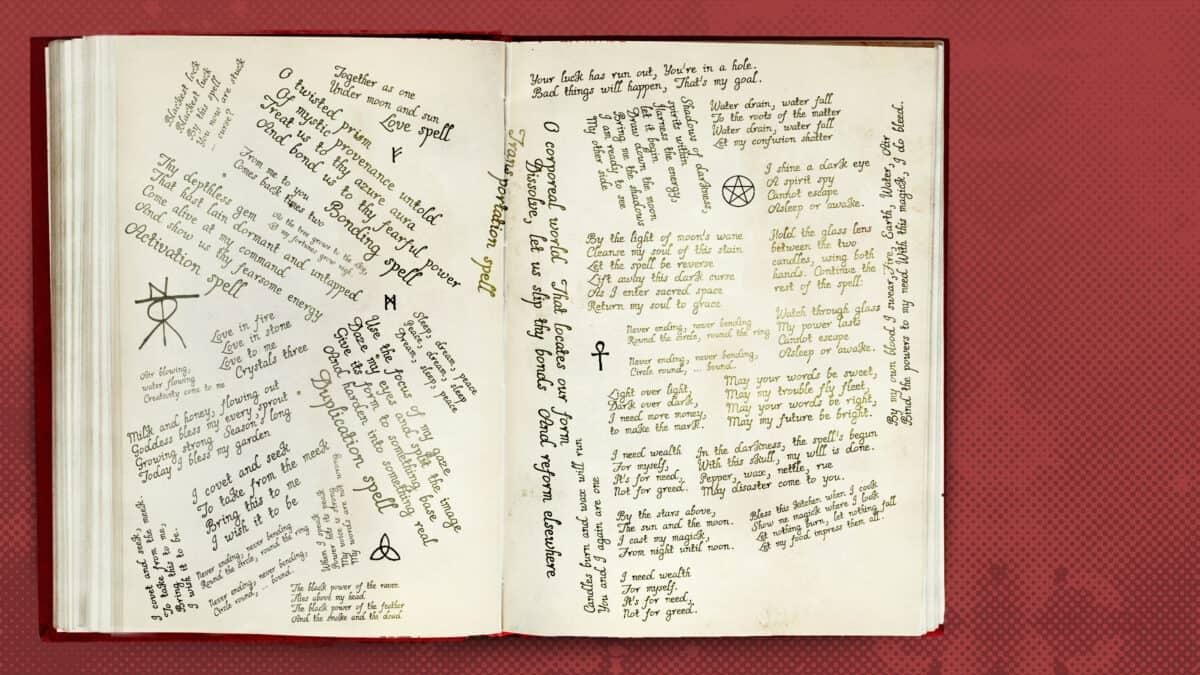 Blackest lock
Blackest luck
By this spell
You now are stuck
... curse?
Together as one
Under moon and sun
Love spell
O twisted prism
Of mystic provenance untold
Treat us to thy azure aura
And bond us to thy fearful power
Bonding spell
From me to you
Comes back times two
As the tree grows to the sky,
my fortunes grow high
Thy depthless gem
That hast lain dormant and untapped
Come alive at my command
And show us thy fearsome energy
Activation spell
Love in fire
Love in stone
Love to me
Crystals three
Air blowing,
water flowing
Creativity come to me
Sleep, dream, peace
Peace, dream, sleep
Dream, sleep, peace
Use the focus of my gaze
Daze my eyes and split the image
Give its form to something base
And harden into something real
Duplication spell
Milk and honey, flowing out
Goddess bless my every sprout
Growing strong Season long
Today I bless my garden
I covet and seek
To take from the meek
Bring this to me
I wish it to be
I covet and seek,
To take from the meek.
Bring this to me,
I wish it to be.
Never ending, never bending
Round the circle, round the ring
Never ending, never bending,
Circle round, ... bound.
When I speak
Power lets its mark
My voice is strong
My words are
The black power of the raven
Flies above my head
The black power of the feather
And the snake and the dead
Transportation spell
Your luck has run out, You're in a hole.
Bad things will happen, That's my goal.
O corporeal world That locates our form
Dissolve, let us slip thy bonds And reform elsewhere
Shadows of darkness,
spirits within
Harness the energy,
let it begin
Draw down the moon
Bring me the shadows
I am ready to see
My other side
Water drain, water fall
To the roots of the matter
Water drain, water fall
Let my confusion shatter
I shine a dark eye
A spirit spy
Cannot escape
Asleep or awake.
By my own blood I swear, Fire, Earth, Water, Air
Bind the powers to my need With this magick, I do bleed.
By the light of moon's wane
Cleanse my soul of this stain
Let the spell be reverse
Lift away this dark curse
As I enter sacred space
Return my soul to grace
Hold the glass lens
between the two
candles, using both
hands. Continue the
rest of the spell:
Watch through glass
My power lasts
Cannot escape
Asleep or awake.
Never ending, never bending
Round the circle, round the ring
Never ending, never bending,
Circle round, ... bound.
Light over light,
Dark over dark,
I need more money,
to make the mark.
May your words be sweet,
May my trouble fly fleet,
May your words be right,
May my future be bright.
I need wealth
For myself,
It's for need,
Not for greed.
In the darkness, the spell's begun
With this skull, my will is done.
Pepper, wax, nettle, rue
May disaster come to you.
Candles burn and wax will run
You and I again are one
By the stars above,
The sun and the moon.
I cast my magick,
From night until noon.
Bless this kitchen when I cook
Show me magick where I look
Let nothing burn, let nothing fall
Let my food impress them all.
I need wealth
For myself.
It's for need,
Not for greed.